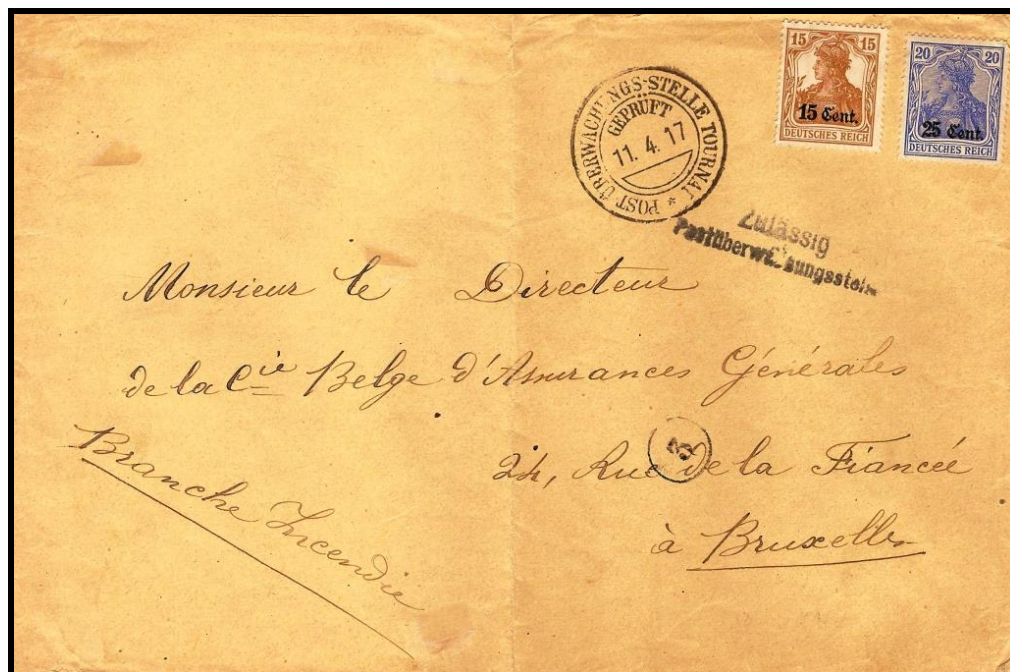 15 15
15 Cent.
DEUTSCHES REICH
20 20
25 Cent.
DEUTSCHES REICH
POST ÜBERWACHUNGS-STELLE TOURNAI *
GEPRÜFT
11. 4. 17
Zulässig
Postüberwachungsstelle
Monsieur le Directeur
de la Cie Belge d'Assurances Générales
3
24, Rue de la Fiancée
à Bruxelles
Branche Incendie